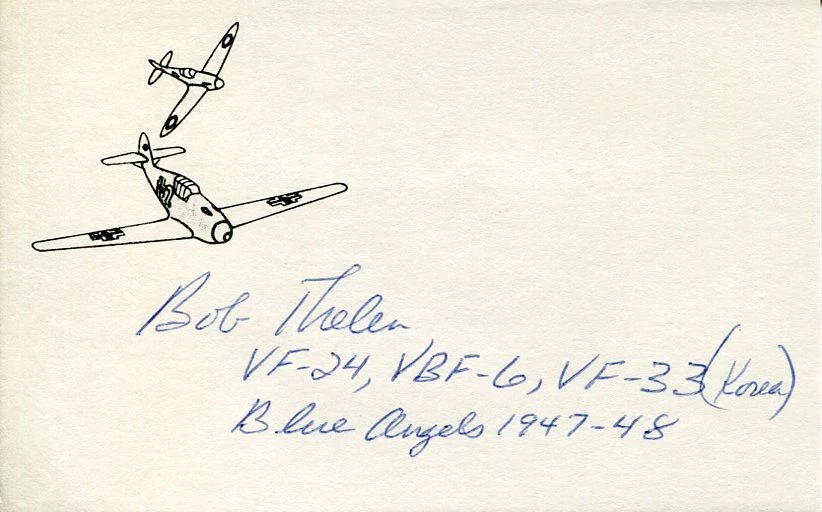 Bob Thelen
VF-24, VBF-6, VF-33 (Korea)
Blue Angels 1947-48